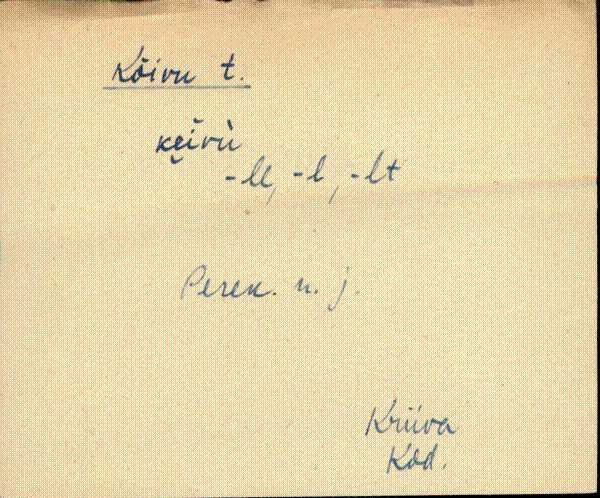 Kõivu t.
ke̮i̮vù
-lle, -l, -lt
Peren. n. j.
Kriiva
Kod.